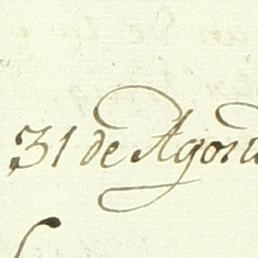 31 de Agosto